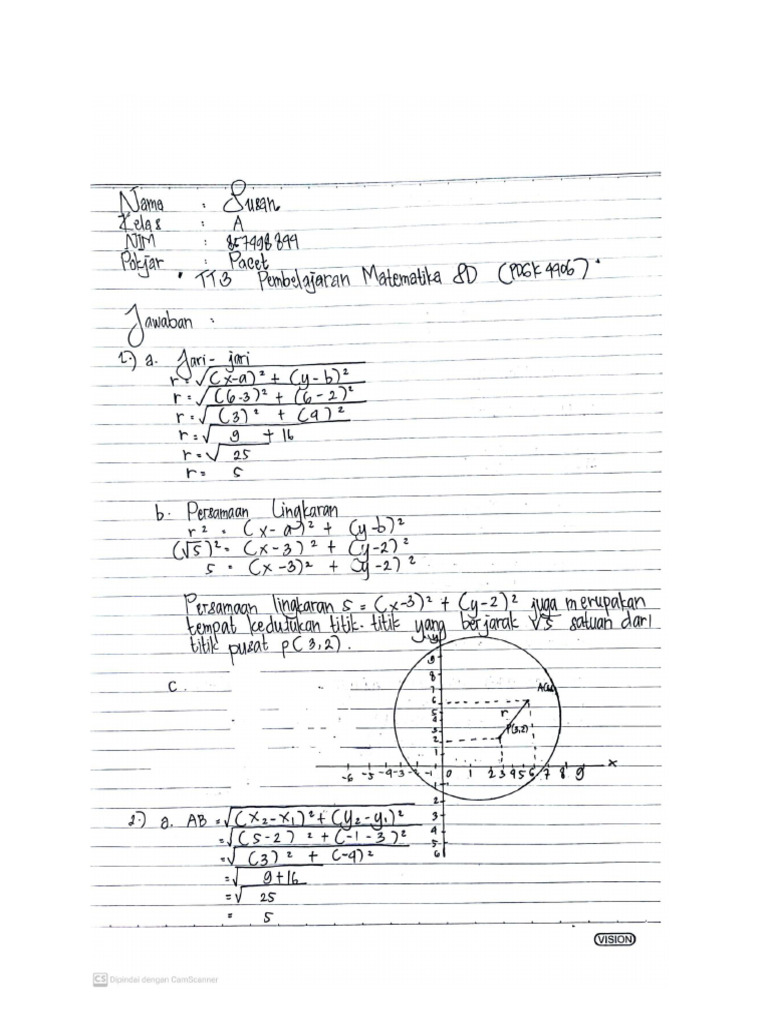 Nama : Susan
Kelas : A
NIM : 857498899
Pokjar : Pacet
" TT3 Pembelajaran Matematika SD (PDGK 4406) "
Jawaban :
1.) a. Jari-jari
r = √(x-a)² + (y-b)²
r = √(6-3)² + (6-2)²
r = √(3)² + (4)²
r = √9 + 16
r = √25
r = 5
b. Persamaan Lingkaran
r² = (x-a)² + (y-b)²
(√5)² = (x-3)² + (y-2)²
5 = (x-3)² + (y-2)²
Persamaan lingkaran 5 = (x-3)² + (y-2)² juga merupakan
tempat kedudukan titik-titik yang berjarak √5 satuan dari
titik pusat P(3,2).
c.
9
8
7
6
5
4
3
2
1
r
P(3,2)
-6 -5 -4 -3 -1 0 1 2 3 4 5 6 7 8 9 x
2
3
4
5
6
2.) a. AB = √(x₂-x₁)² + (y₂-y₁)²
= √(5-2)² + (-1-3)²
= √(3)² + (-4)²
= √9+16
= √25
= 5
VISION
CS Dipindai dengan CamScanner